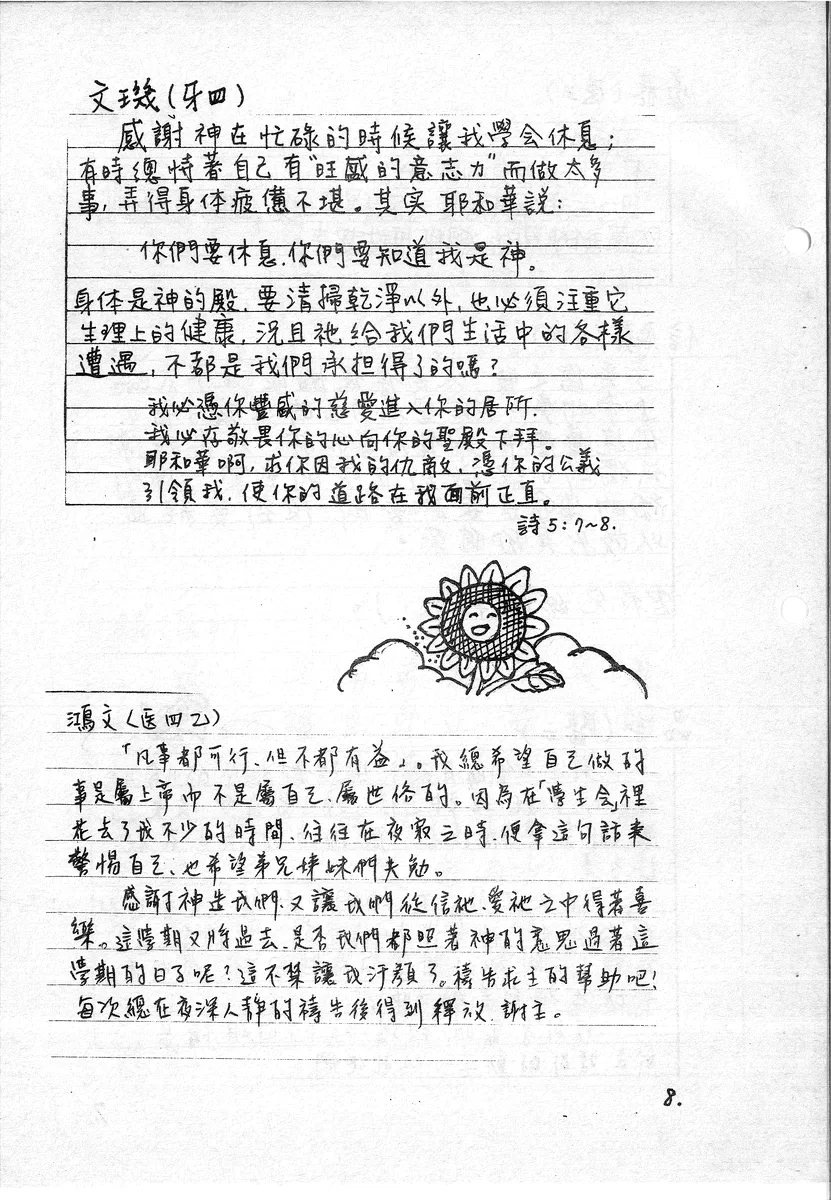 文璣(牙四)
感謝神在忙碌的時候讓我學会休息；
有時總恃著自己有"旺盛的意志力"而做太多
事，弄得身体疲憊不堪。其实耶和華説：
你們要休息，你們要知道我是神。
身体是神的殿，要清掃乾淨以外，也必須注重它
生理上的健康，況且祂給我們生活中的各樣
遭遇，不都是我們承担得了的嗎？
我必憑你豐盛的慈愛進入你的居所，
我必存敬畏你的心向你的聖殿下拜。
耶和華啊，求你因我的仇敵，憑你的公義
引領我，使你的道路在我面前正直。
詩5:7~8.
鴻文(医四乙)
「凡事都可行、但不都有益」。我總希望自己做的
事是屬上帝而不是屬自己、屬世俗的。因為在「學生会」裡
花去了我不少的時間、往往在夜寂之時、便拿這句話來
警惕自己、也希望弟兄姊妹們共勉。
感謝神造我們、又讓我們從信祂、愛祂之中得著喜
樂。這學期又將過去、是否我們都照著神的意思過著這
學期的日子呢？這不禁讓我汗顏了。禱告求主的幫助吧！
每次總在夜深人靜的禱告後得到釋放、謝主。
8.